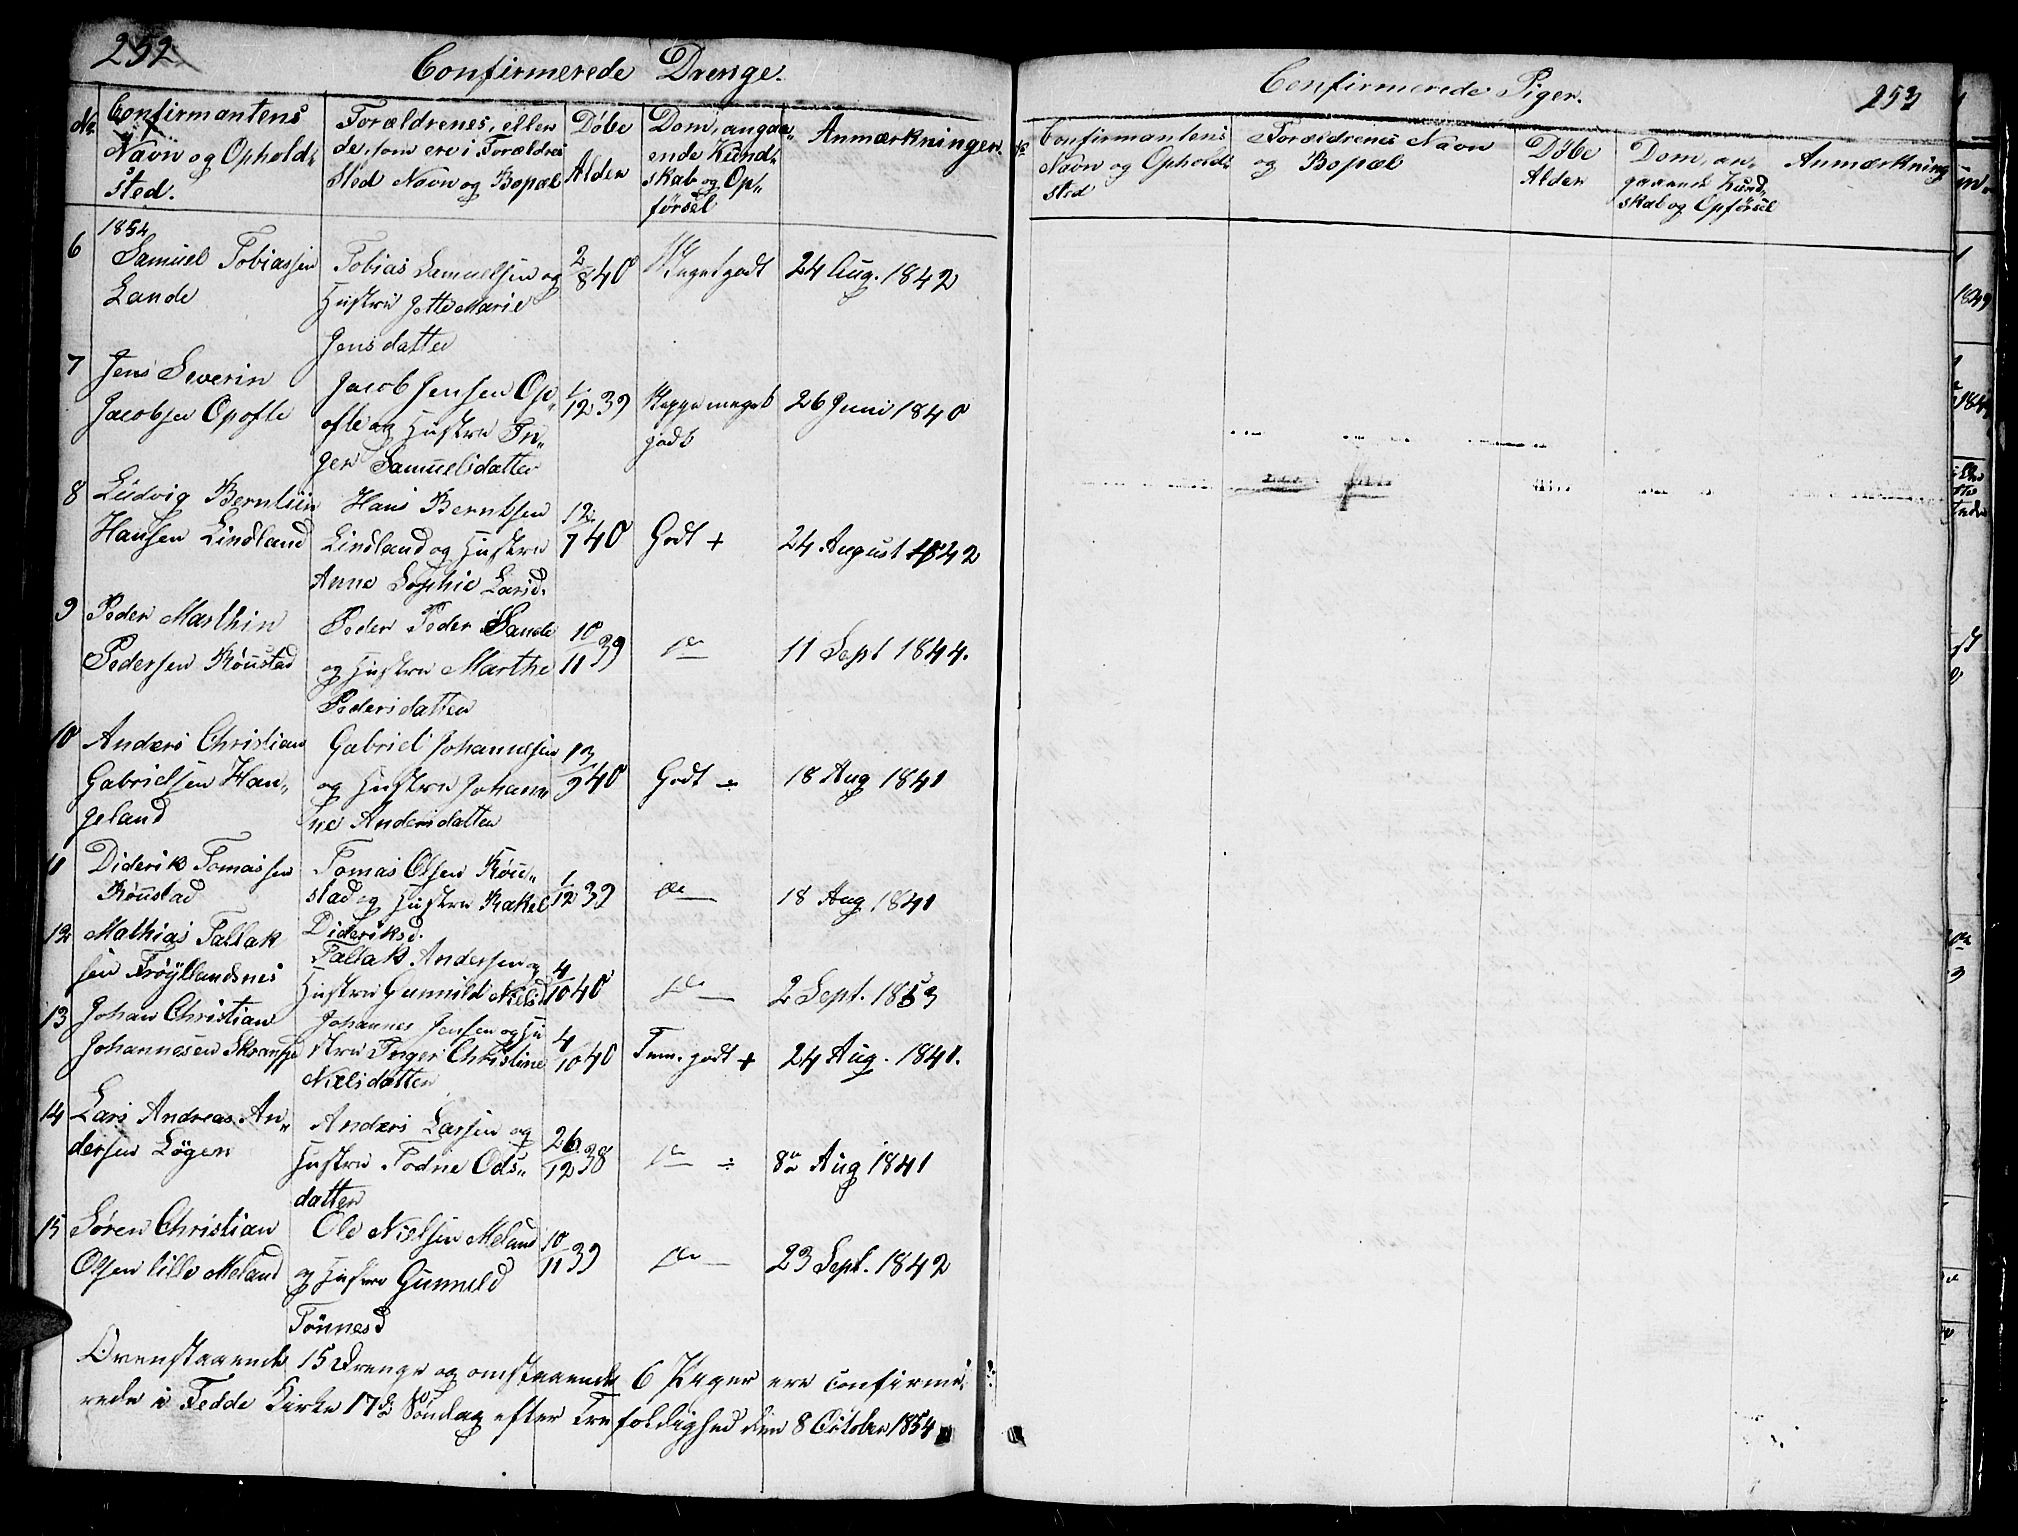 252
Confirmerede Drenge.
No
Confirmantens
Navn og Ophold,
sted.
Forældrenes, eller
de, som ere i Forældres
Sted Navn og Bopæl
Døbe
Alder
Dom, angaa,,
ende Kund,
skab og Op,,
førsel
Anmærkninger.
1854
6
Samuel Tobiassen
Lande
Tobias Samuelsen og
Hustru Jette Marie
Jensdatter
2/8 40
Meget godt
24 Aug. 1842
7
Jens Severin
Jacobsen Opofte
Jacob Jensen Op,,
ofte og Hustru In,,
ger Samuelsdatter
1/12 39
meget
godt
26 Juni 1840
8
Ludvig Berntiin
Hansen Lindland
Hans Berntsen
Lindland og Hustru
Anne Sophie Larsd.
12/7 40
Godt +
24 August 1842
9
Peder Marthin
Pedersen Røustad
Peder Peder Sande
og Hustru Marthe
Pedersdatter
10/11 39
do
11 Sept 1844.
10
Anders Christian
Gabrielsen Han,,
geland
Gabriel Johannesen
og Hustru Johan,,
ne Andersdatter
13/9 40
Godt ÷
18 Aug 1841
11
Diderik Tomassen
Røustad
Tomas Olsen Røu,,
stad og Hustru Rakel
Dideriksd.
1/12 39
do
18 Aug 1841
12
Mathias Tallak
sen Frøÿllandsnes
Tallak Andersen og
Hustru Gunnild Nielsd
4/10 40
do
2 Sept. 1853
13
Johan Christian
Johannesen Skranpe
Johannes Jensen og Hu
stru Inger Christine
Nielsdatter
4/10 40
Tem. godt +
24 Aug. 1841.
14
Lars Andreas An,,
dersen Løgen
Anders Larsen og
Hustru Todne Ods,,
datter
26/12 38
do ÷
8de Aug 1841
15
Søren Christian
Olsen lille Meland
Ole Nielsen Meland
og Hustru Gunnild
Tønnesd
10/11 39
do
23 Sept. 1842
Ovenstaaende 15 Drenge og omstaaende 6 Piger ere confirme,
rede i Fedde Kirke 17de Søndag efter Trefoldighed den 8 October 1854
Confirmerede Piger.
253
No
Confirmantens
Navn og Ophold,
sted
Forældrenes Navn
og Bopæl
Døbe
Alder
Dom, an,
gaaende Kund,
skab og Opførsel
Anmærkning